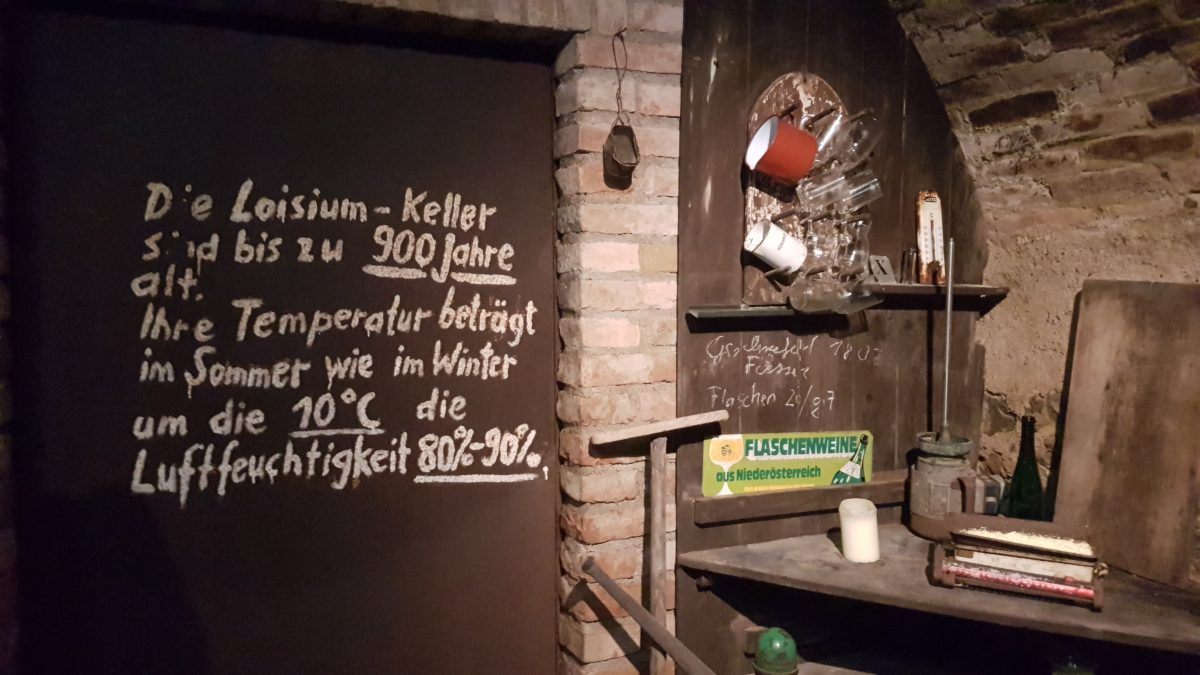 Die Loisium-Keller
sind bis zu 900 Jahre
alt.
Ihre Temperatur beträgt
im Sommer wie im Winter
um die 10°C die
Luftfeuchtigkeit 80%-90%.
1807
Fässer
Flaschen
FLASCHENWEINE
aus Niederösterreich
C